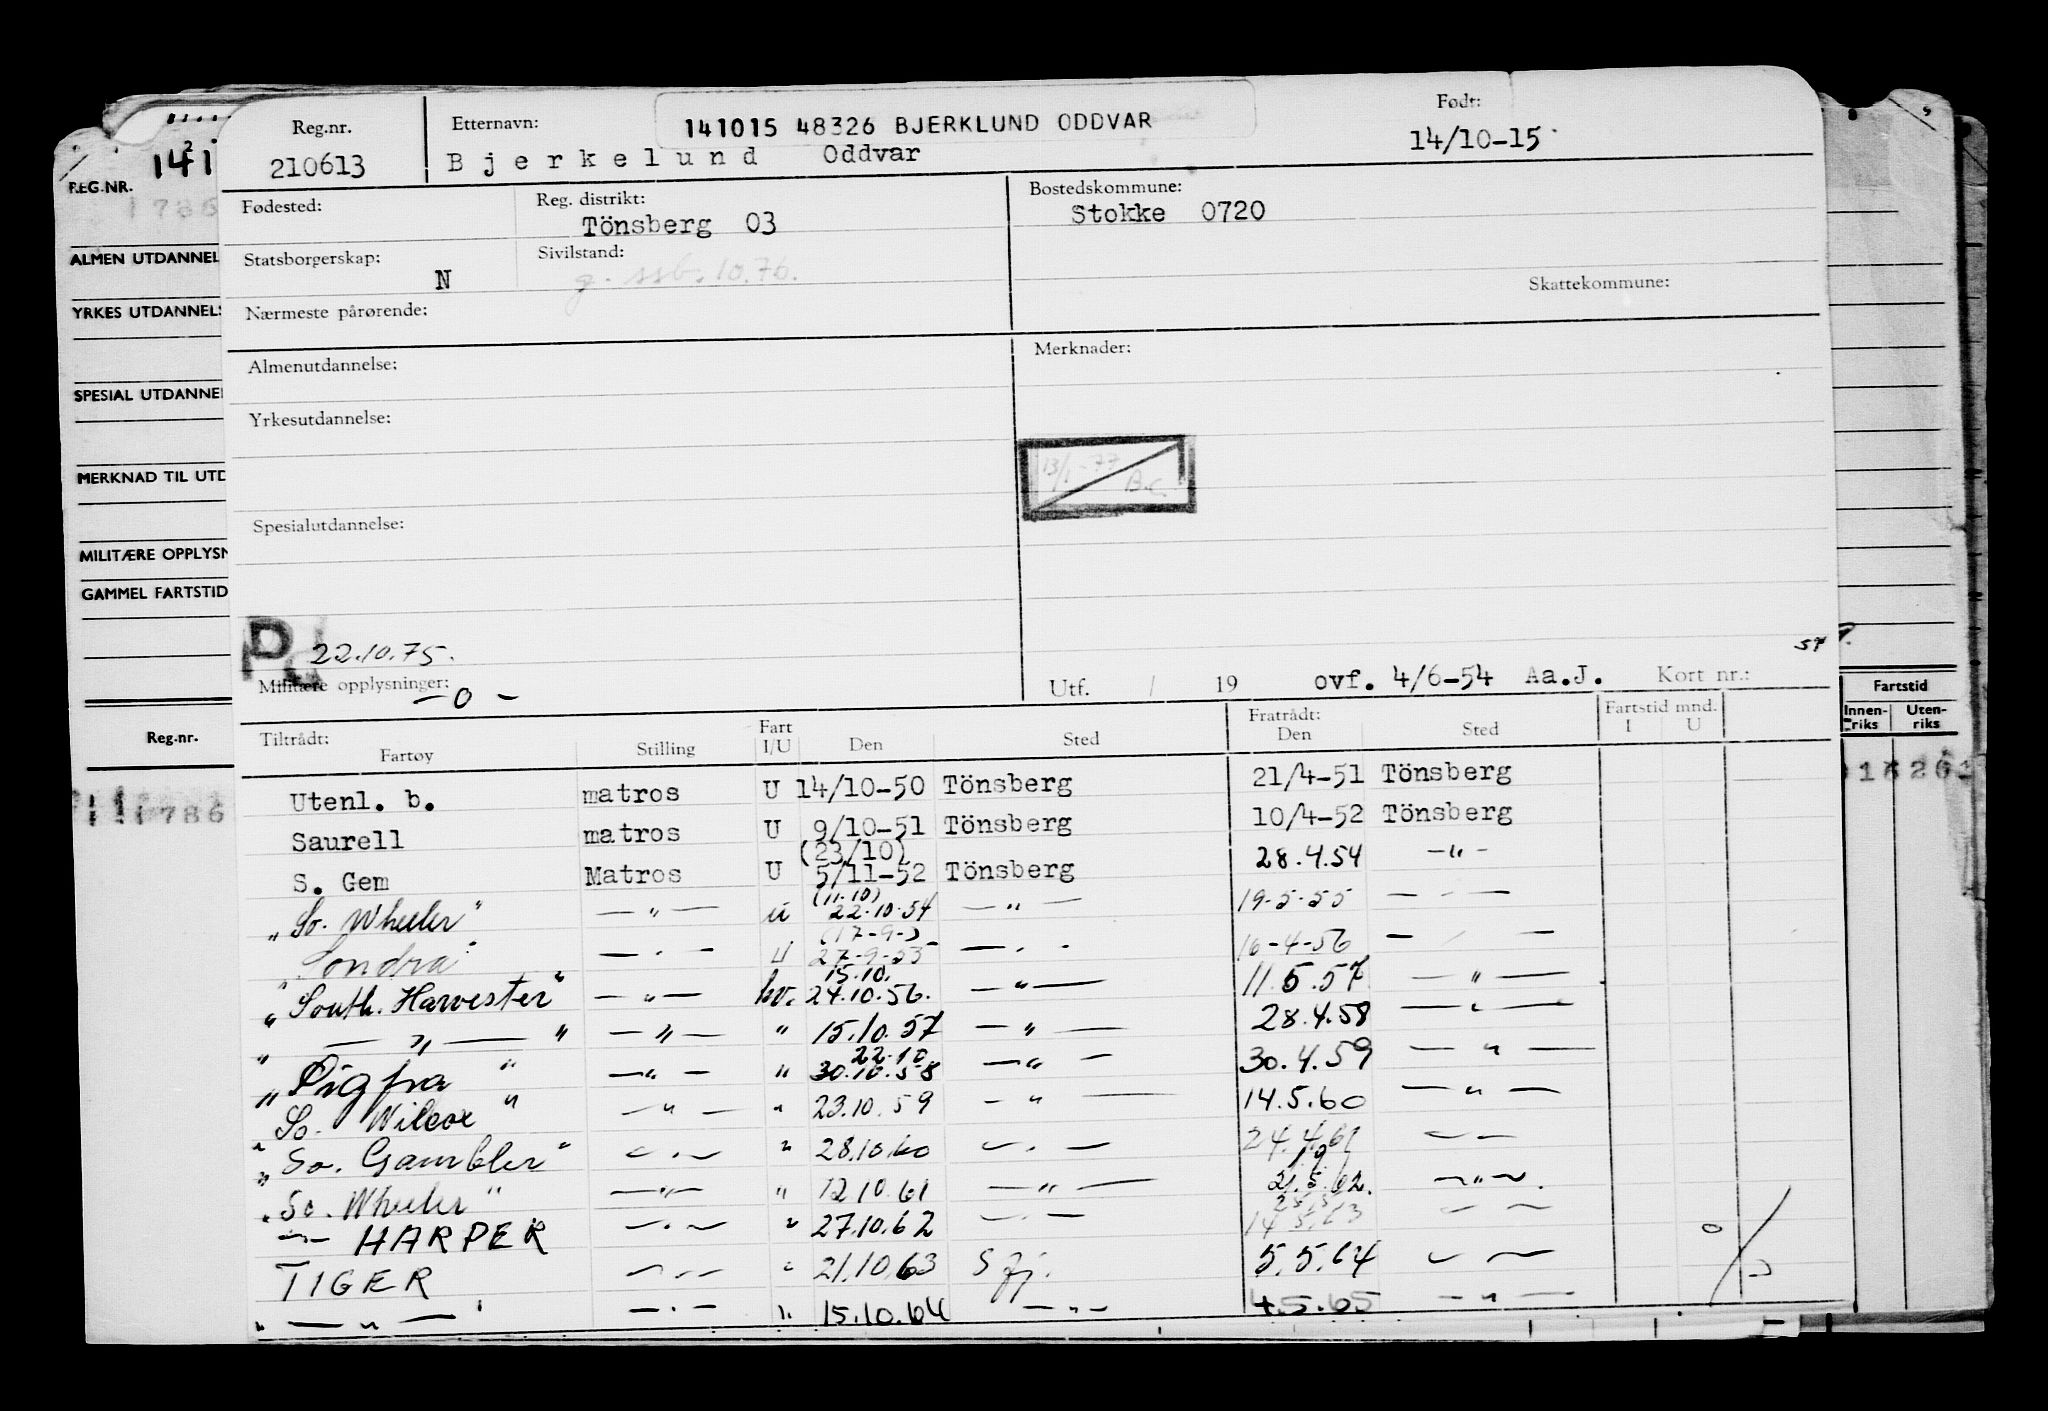 141015 48326 BJERKLUND ODDVAR
Reg.nr. Etternavn: Født:
210613 Bjerkelund Oddvar 14/10-15
Fødested: Reg. distrikt: Bostedskommune:
Tönsberg 03 Stokke 0720
Statsborgerskap: Sivilstand:
N g. ssb. 10.76. Skattekommune:
Nærmeste pårørende:
Almenutdannelse: Merknader:
Yrkesutdannelse:
13/1-77 B.C.
Spesialutdannelse:
22.10.75.
Militære opplysninger: Utf. / 19 ovf. 4/6-54 Aa.J. Kort nr.:
-0-
Tiltrådt: Fart Fratrådt: Fartstid mnd.
Fartøy Stilling I/U Den Sted Den Sted I U
Utenl. b. matros U 14/10-50 Tönsberg 21/4-51 Tönsberg
Saurell matros U 9/10-51 Tönsberg 10/4-52 Tönsberg
(23/10)
S. Gem Matros U 5/11-52 Tönsberg 28.4.54 -"-
(11.10)
"So. Wheeler" -"- u 22.10.54 -"- 19-5-55 -"-
(17-9-)
"Sondra" -"- u 27-9-55 -"- 16-4-56 -"-
15.10.
"South. Harvester" -"- hv. 24.10.56. -"- 11.5.57 -"-
" -"- " -"- " 15.10.57 -"- 28.4.58 -"-
22.10
"Pigfra" -"- " 30.10.58 -"- 30.4.59 -"-
"So. Wilcox" -"- " 23.10.59 -"- 14.5.60 -"-
"So. Gambler" -"- " 28.10.60 -"- 24.4.61 -"-
"So. Wheeler" -"- " 12.10.61 -"- 21.5.62. -"-
-"- HARPER -"- " 27.10.62 -"- 14.5.63 -"-
TIGER -"- " 21.10.63 S fj. 5.5.64 -"-
" -"- " -"- " 15.10.64 -"- 4.5.65 -"-
REG.NR.
ALMEN UTDANNEL
YRKES UTDANNELS
SPESIAL UTDANNEL
MERKNAD TIL UTD
MILITÆRE OPPLYSN
GAMMEL FARTSTID
Reg.nr.
Fartstid
Innen-riks Uten-riks